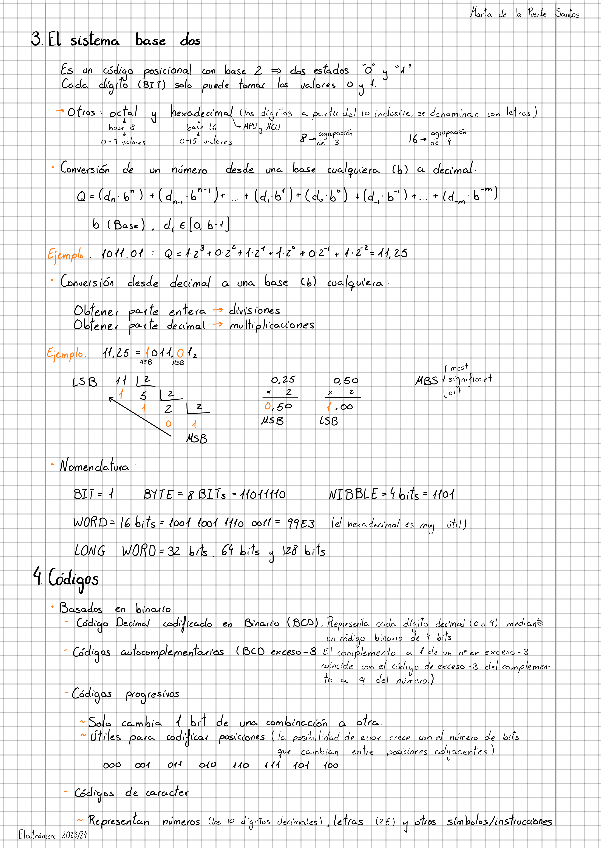 Marta de la Puente Santos
3. El sistema base dos
Es un código posicional con base 2 ⇒ dos estados "0" y "1"
Cada dígito (BIT) solo puede tomar los valores 0 y 1.
→ Otros: octal y hexadecimal (los dígitos a partir del 10 inclusive se denominan con letras)
base 8 base 16
0-7 valores 0-15 valores 8 → agrupación de 3 16 → agrupación de 4
· Conversión de un número desde una base cualquiera (b) a decimal:
Q = (dn · b^n) + (dn-1 · b^n-1) + ... + (d1 · b^1) + (d0 · b^0) + (d-1 · b^-1) + ... + (d-m · b^-m)
b (Base), di ∈ [0, b-1]
Ejemplo. 1011,01 : Q = 1·2^3 + 0·2^2 + 1·2^1 + 1·2^0 + 0·2^-1 + 1·2^-2 = 11,25
· Conversión desde decimal a una base (b) cualquiera.
Obtener parte entera → divisiones
Obtener parte decimal → multiplicaciones
Ejemplo. 11,25 = 1011,01₂
MSB LSB
LSB 11 2 0,25 0,50 MBS most
1 5 2 x 2 x 2 significant
1 2 2 0,50 1.00 bit
0 1 MSB LSB
MSB
· Nomenclatura
BIT = 1 BYTE = 8 BITs = 11011110 NIBBLE = 4 bits = 1101
WORD = 16 bits = 1001 1001 1110 0011 = 99E3 (el hexadecimal es muy útil)
LONG WORD = 32 bits, 64 bits y 128 bits
4. Códigos
· Basados en binario
- Código Decimal codificado en Binario (BCD). Representa cada dígito decimal (0 a 9) mediante
un código binario de 4 bits
- Códigos autocomplementarios (BCD exceso-3 El complemento a 1 de un nº en exceso-3
coincide con el código de exceso-3 del complemen-
to a 9 del número.)
- Códigos progresivos
~ Solo cambia 1 bit de una combinación a otra.
~ Útiles para codificar posiciones (la posibilidad de error crece con el número de bits
que cambian entre posiciones adyacentes)
000 001 011 010 110 111 101 100
- Códigos de caracter
~ Representan números (los 10 dígitos decimales), letras (26) y otros símbolos/instrucciones
Electrónica 2023/24